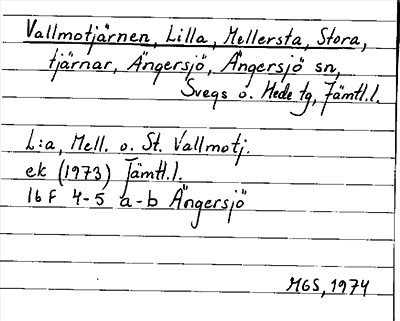 Vallmotjärnen, Lilla, Mellersta, Stora,
tjärnar, Ängersjö, Ängersjö sn,
Svegs o. Hede tg, Jämtl.l.
L:a, Mell. o. St. Vallmotj.
ek (1973) Jämtl.l.
16 F 4-5 a-b Ängersjö
MGS, 1974